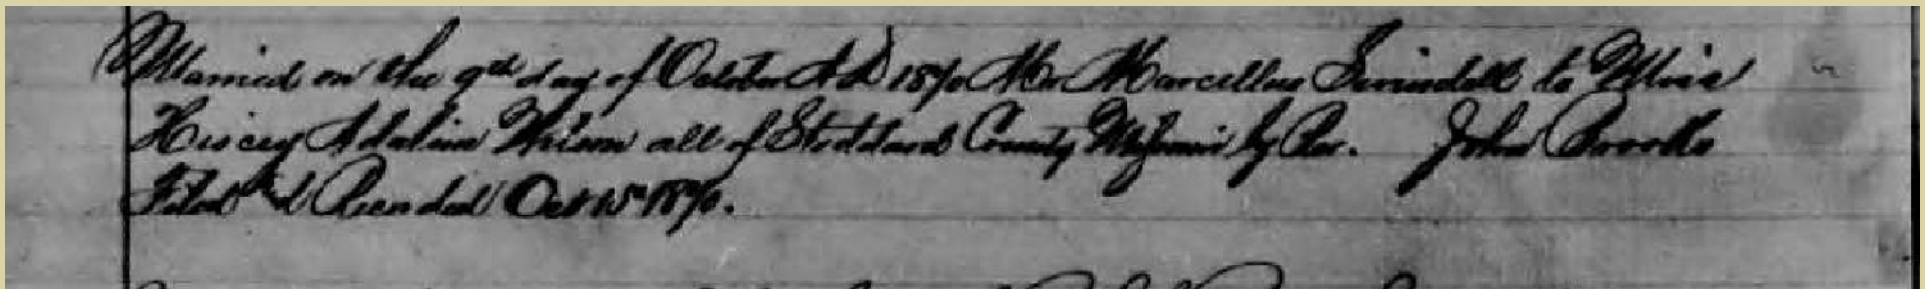 Married on the 9th day of October A D 1870 Mr Marcellus Swindell to Miss
Adaline Wilson all of Stoddard County Missouri by Rev. John Brooks
Filed & Recorded Oct 15th 1870.